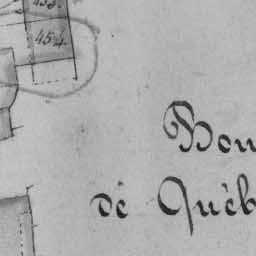 454
Bou
de Québ